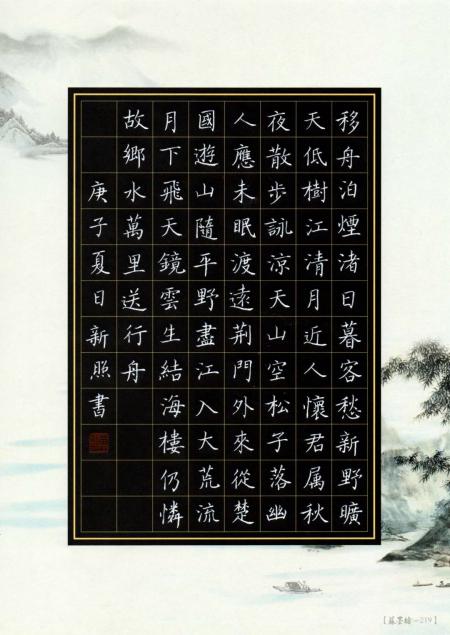 移舟泊煙渚日暮客愁新野曠
天低樹江清月近人懷君属秋
夜散步詠涼天山空松子落幽
人應未眠渡遠荆門外來從楚
國遊山隨平野盡江入大荒流
月下飛天鏡雲生結海樓仍憐
故鄉水萬里送行舟
庚子夏日新照書
219